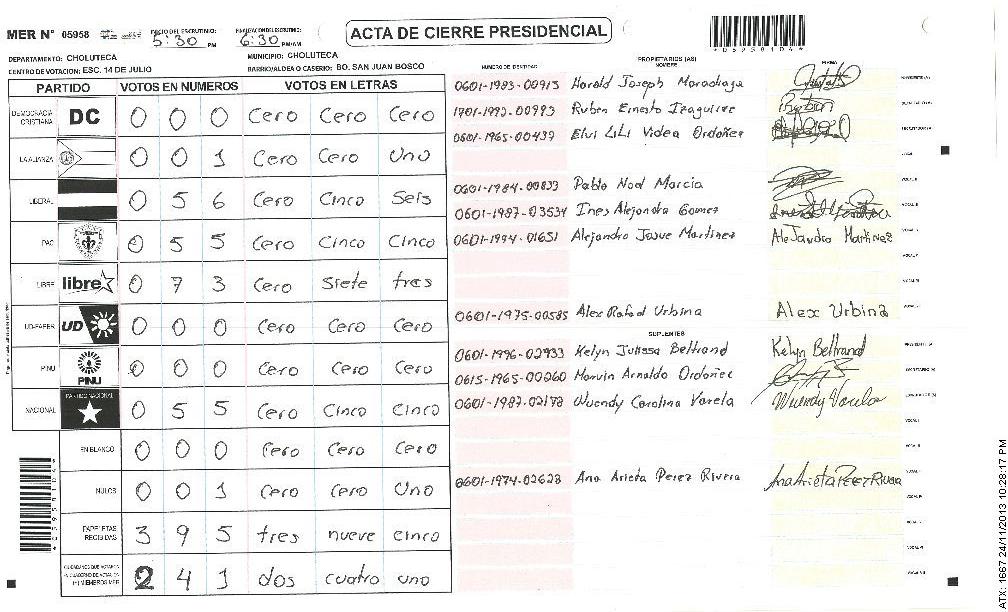 MER N° 05958 INICIO DEL ESCRUTINIO: 5:30 PM 6:30 PM/AM ACTA DE CIERRE PRESIDENCIAL *05958104*
DEPARTAMENTO: CHOLUTECA MUNICIPIO: CHOLUTECA
CENTRO DE VOTACION: ESC. 14 DE JULIO BARRIO/ALDEA O CASERIO: BO. SAN JUAN BOSCO
PARTIDO VOTOS EN NUMEROS VOTOS EN LETRAS
DEMOCRACIA CRISTIANA DC 0 0 0 Cero Cero Cero
LA ALIANZA 0 0 1 Cero Cero Uno
LIBERAL 0 5 6 Cero Cinco Seis
PAC 0 5 5 Cero Cinco Cinco
LIBRE libre 0 7 3 Cero Siete tres
UD-FAPER UD 0 0 0 Cero Cero Cero
PINU PINU 0 0 0 Cero Cero Cero
NACIONAL PARTIDO NACIONAL 0 5 5 Cero Cinco Cinco
EN BLANCO 0 0 0 Cero Cero Cero
NULOS 0 0 1 Cero Cero Uno
PAPELETAS RECIBIDAS 3 9 5 tres nueve cinco
2 4 1 dos cuatro uno
PROPIETARIOS (AS)
NUMERO DE IDENTIDAD NOMBRE FIRMA
0601-1983-00915 Harold Joseph
Ruben Ernesto Izaguirre Ruben
0601-1965-00439 Videa Ordoñez
0601-1984-00833 Pablo Noel
0601-1987-03534 Ines Alejandra Gomez
0601-1994-01651 Alejandro Josue Martinez Alejandro Martinez
0601-1975-00585 Alex Rafael Urbina Alex Urbina
SUPLENTES
0601-1996-02933 Kelyn Julissa Beltrand Kelyn Beltrand
0615-1965-00260 Marvin Arnaldo Ordoñez
0601-1987-02178 Wuendy Carolina Varela Wuendy Varela
0601-1974-02628 Ana Arieta Perez Rivera Ana Arieta Perez Rivera
*05958104*
ATX: 1667 24/11/2013 10:28:17 PM